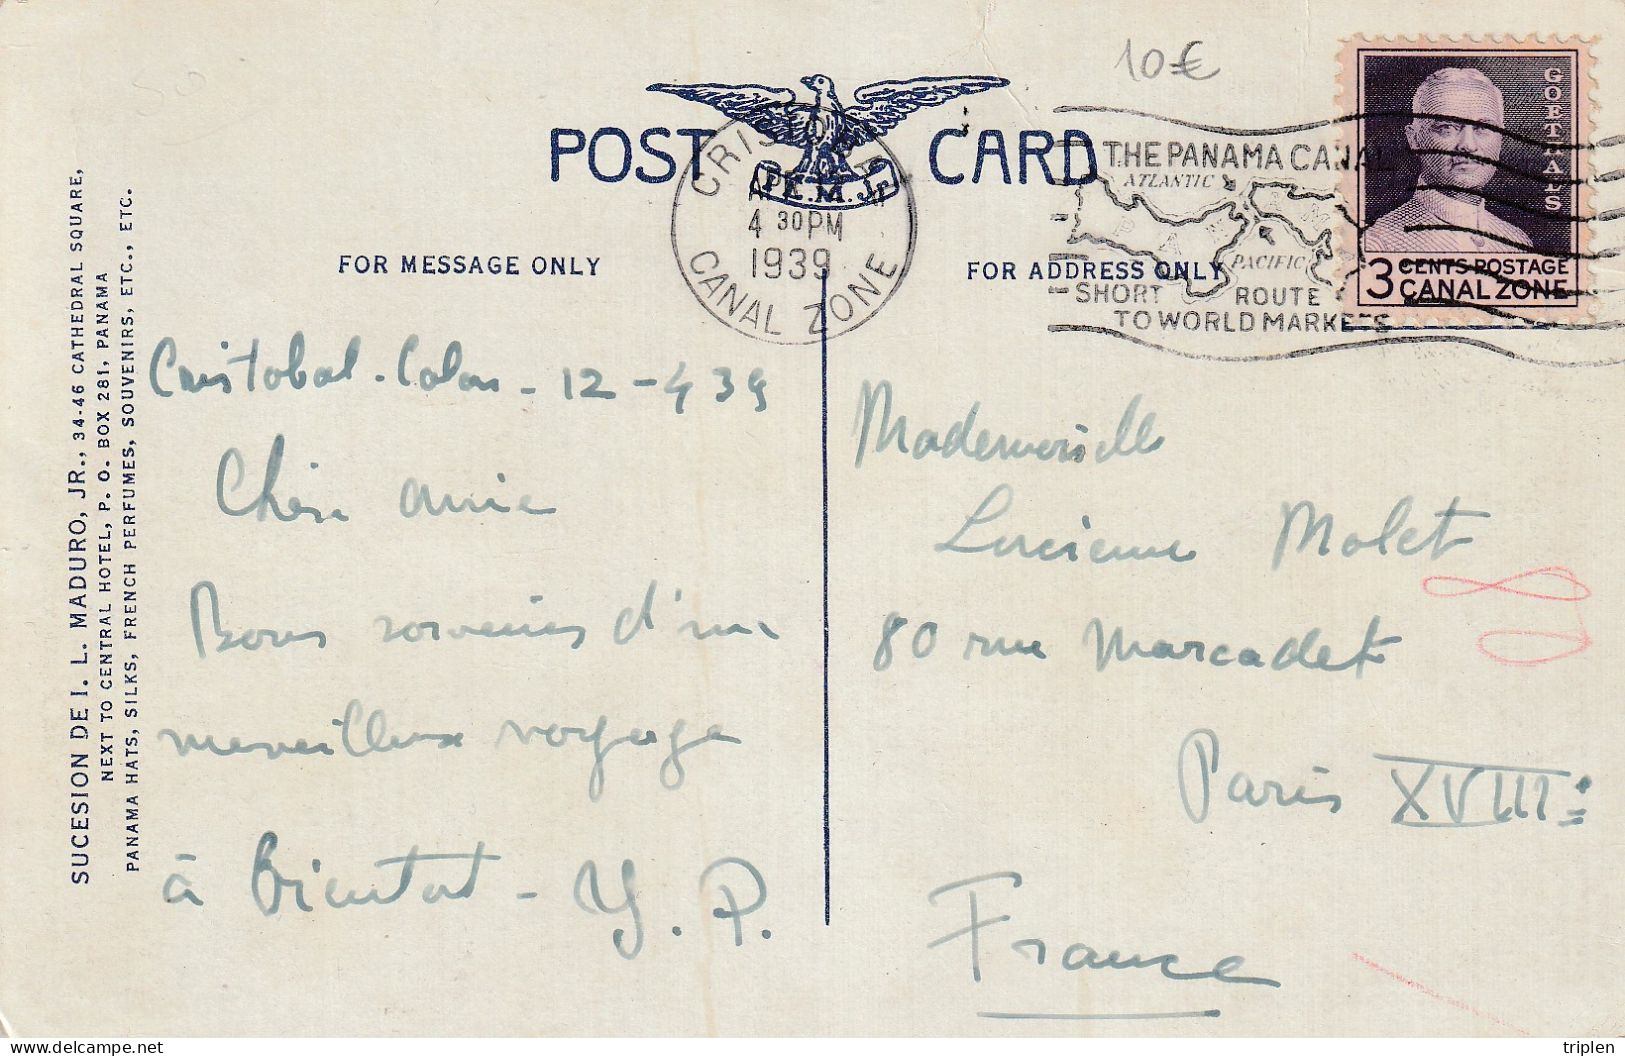 10€
POST CARD
I.L.M.Jr
CRISTOBAL
4 30PM
1939
CANAL ZONE
THE PANAMA CANAL
ATLANTIC
PACIFIC
SHORT ROUTE
TO WORLD MARKETS
GOETHALS
3 CENTS POSTAGE
CANAL ZONE
FOR MESSAGE ONLY
FOR ADDRESS ONLY
SUCESION DE I. L. MADURO, JR., 34-46 CATHEDRAL SQUARE,
NEXT TO CENTRAL HOTEL, P. O. BOX 281, PANAMA
PANAMA HATS, SILKS, FRENCH PERFUMES, SOUVENIRS, ETC., ETC.
Cristobal-Colon-12-4 39
Chère amie
Bons souvenirs d'un
merveilleux voyage
à bientot - Y. P.
Mademoiselle
Lucienne Molet
80 rue Marcadet
Paris XVIIIe
France
triplen